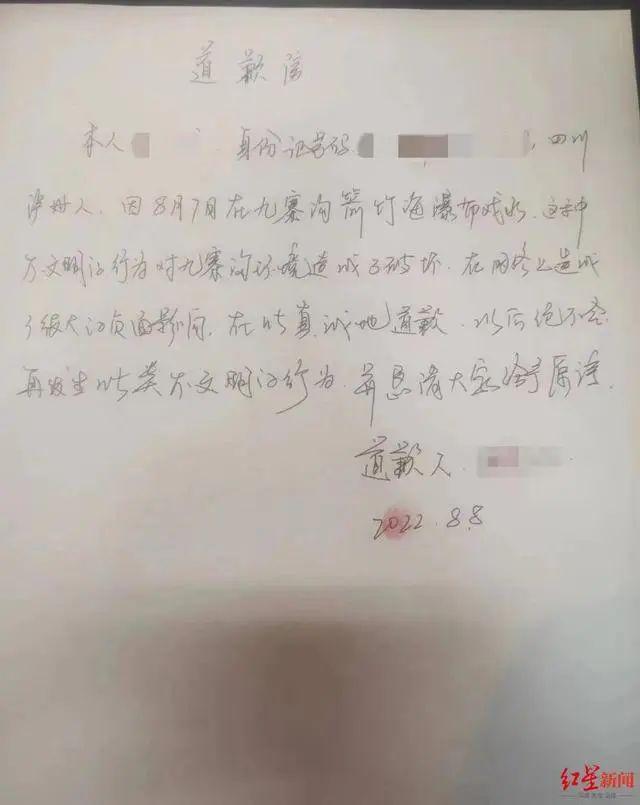 道歉信
本人 身份证号码 , 四川
泸州人、因8月7日在九寨沟箭竹海瀑布戏水、这种
不文明的行为对九寨沟环境造成了破坏、在网络上造成
了很大的负面影响、在此真诚地道歉、以后绝不会
再发生此类不文明的行为、并恳请大家给予原谅.
道歉人、
2022.8.8
红星新闻